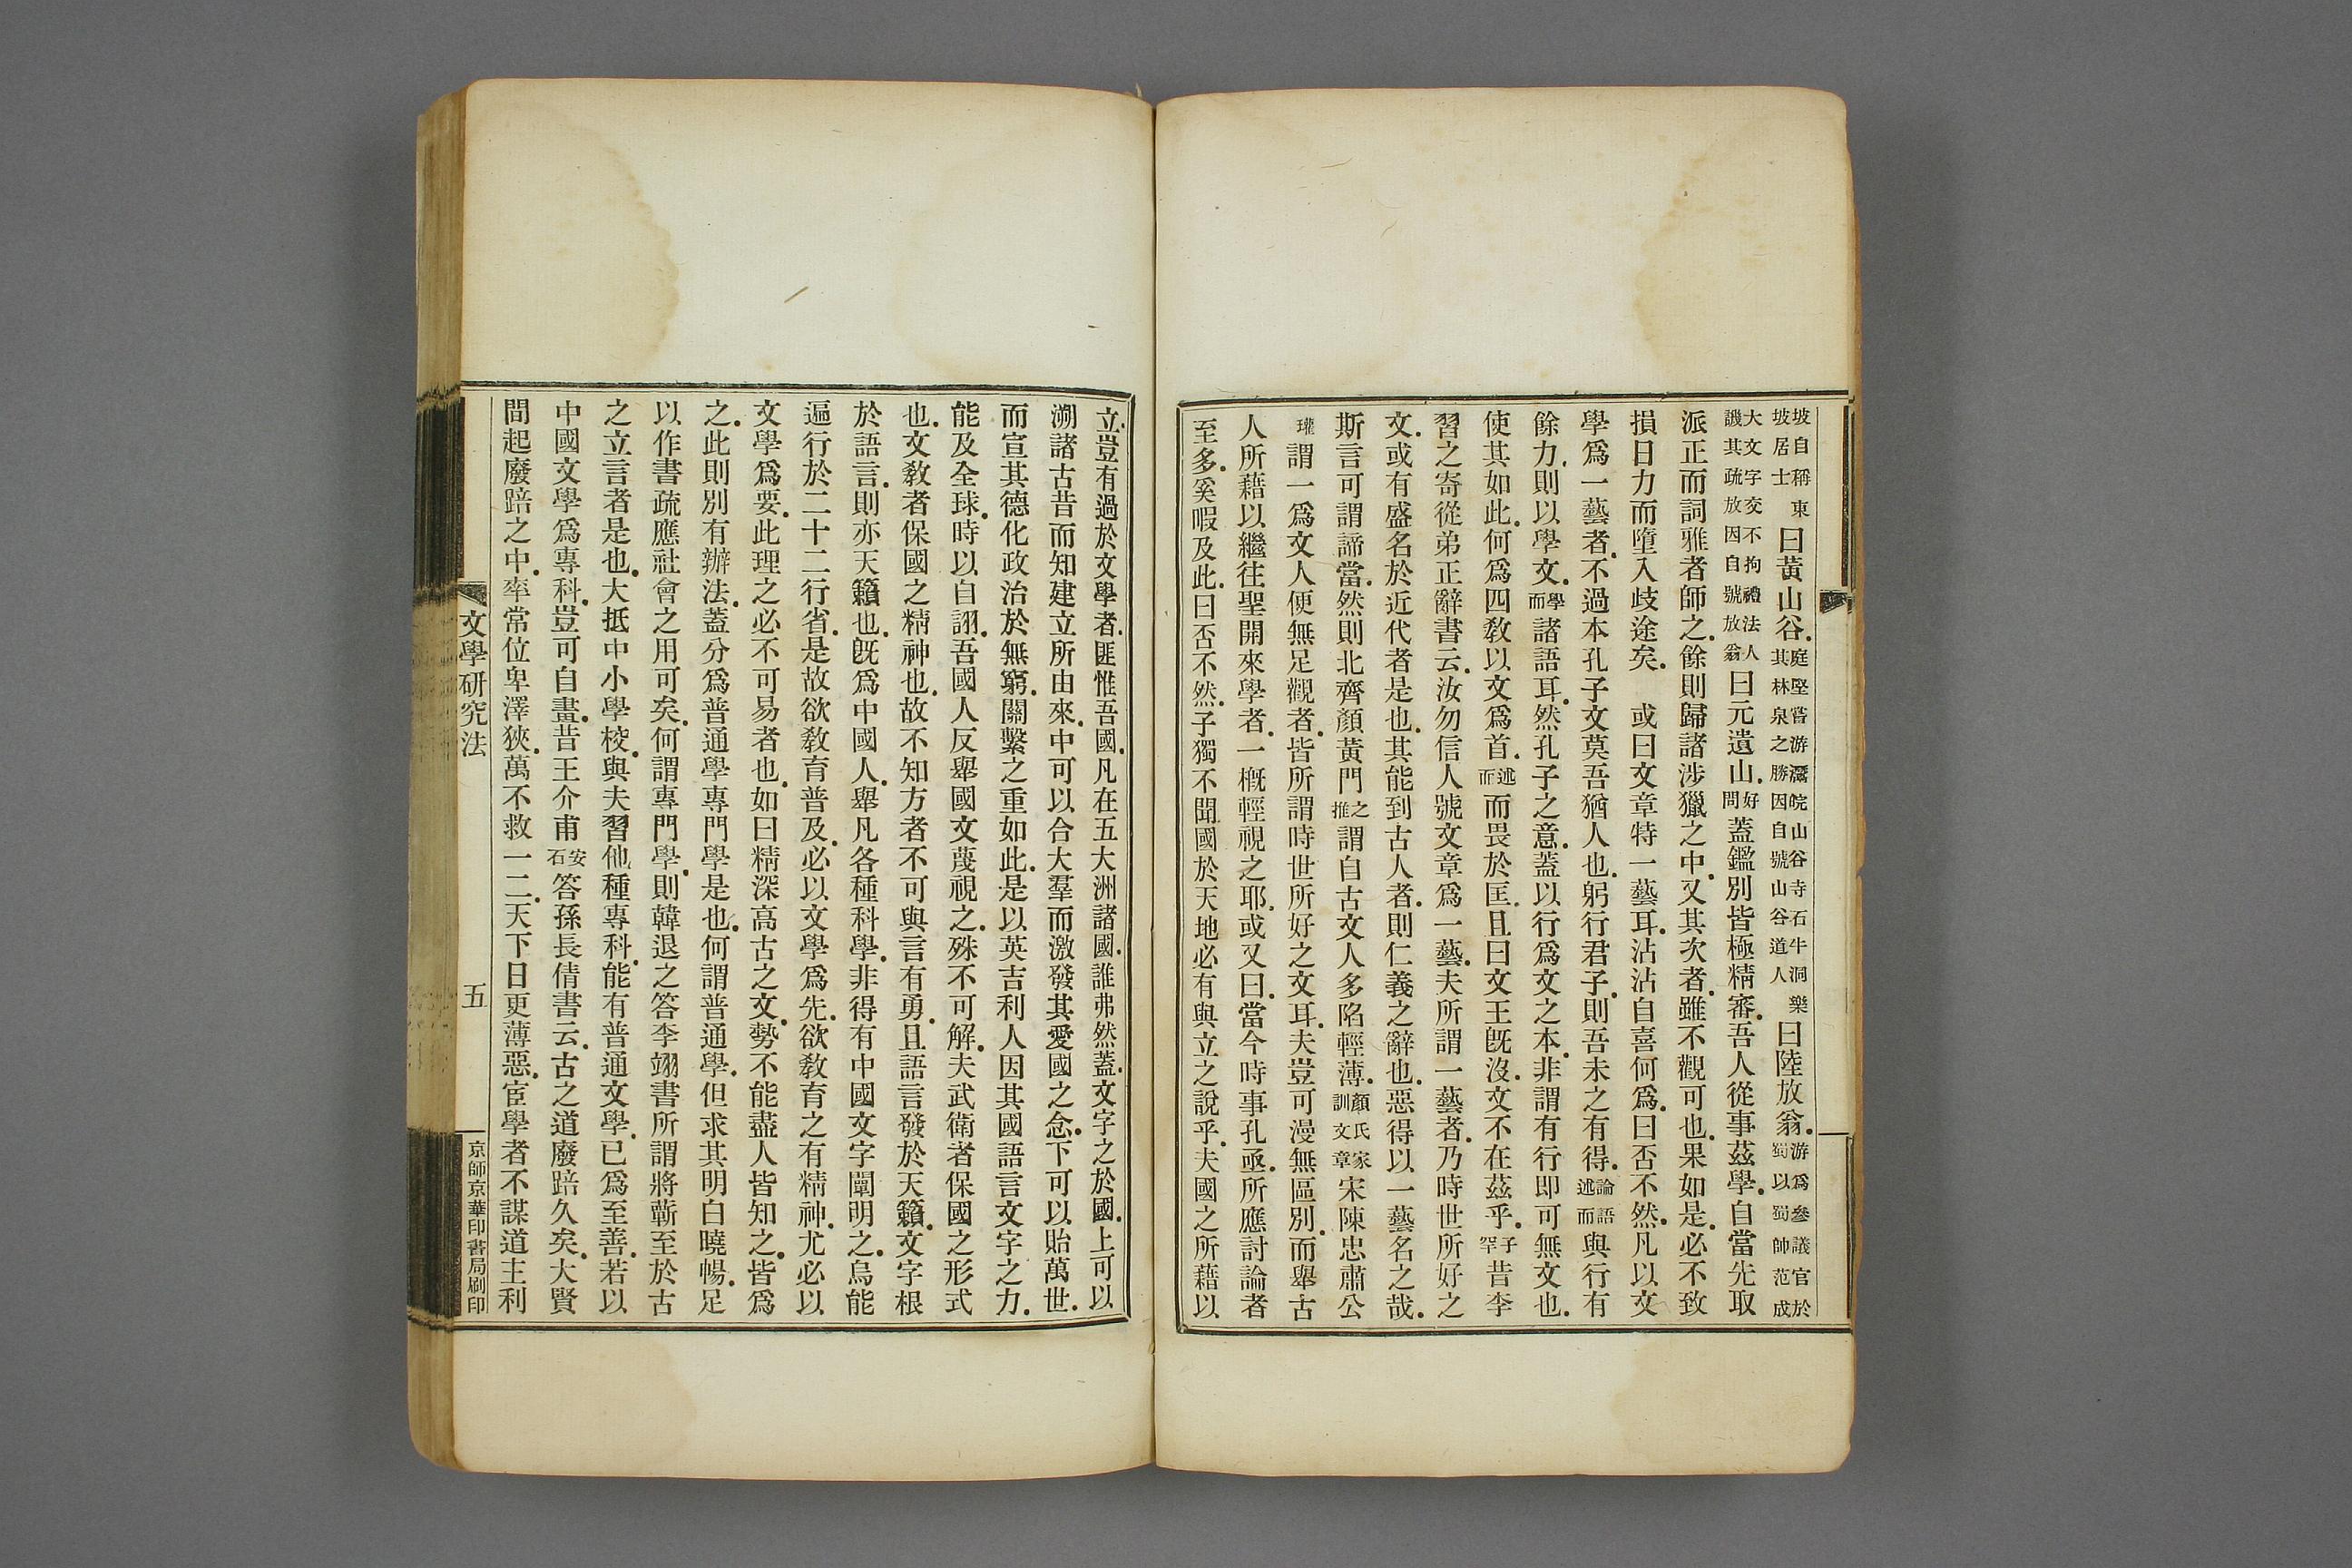 坡自稱東坡居士曰黃山谷庭堅嘗游灊皖山谷寺石牛洞樂其林泉之勝因自號山谷道人曰陸放翁游爲參議官於蜀以蜀帥范成
大文字交不拘禮法人譏其疏放因自號放翁曰元遺山好問蓋鑑別皆極精審吾人從事茲學自當先取
派正而詞雅者師之餘則歸諸涉獵之中又其次者雖不觀可也果如是必不致
損日力而墮入歧途矣 或曰文章特一藝耳沾沾自喜何爲曰否不然凡以文
學爲一藝者不過本孔子文莫吾猶人也躬行君子則吾未之有得論語述而與行有
餘力則以學文學而諸語耳然孔子之意蓋以行爲文之本非謂有行即可無文也
使其如此何爲四敎以文爲首述而而畏於匡且曰文王旣沒文不在茲乎子罕昔李
習之寄從弟正辭書云汝勿信人號文章爲一藝夫所謂一藝者乃時世所好之
文或有盛名於近代者是也其能到古人者則仁義之辭也惡得以一藝名之哉
斯言可謂諦當然則北齊顏黃門之推謂自古文人多陷輕薄顏氏家訓文章宋陳忠肅公
瓘謂一爲文人便無足觀者皆所謂時世所好之文耳夫豈可漫無區別而舉古
人所藉以繼往聖開來學者一槪輕視之耶或又曰當今時事孔亟所應討論者
至多奚暇及此曰否不然子獨不聞國於天地必有與立之說乎夫國之所藉以
立豈有過於文學者匪惟吾國凡在五大洲諸國誰弗然蓋文字之於國上可以
溯諸古昔而知建立所由來中可以合大羣而激發其愛國之念下可以貽萬世
而宣其德化政治於無窮關繫之重如此是以英吉利人因其國語言文字之力
能及全球時以自詡吾國人反舉國文蔑視之殊不可解夫武衛者保國之形式
也文敎者保國之精神也故不知方者不可與言有勇且語言發於天籟文字根
於語言則亦天籟也旣爲中國人舉凡各種科學非得有中國文字闡明之烏能
遍行於二十二行省是故欲敎育普及必以文學爲先欲敎育之有精神尤必以
文學爲要此理之必不可易者也如曰精深高古之文勢不能盡人皆知之皆爲
之此則別有辦法蓋分爲普通學專門學是也何謂普通學但求其明白曉暢足
以作書疏應社會之用可矣何謂專門學則韓退之答李翊書所謂將蘄至於古
之立言者是也大抵中小學校與夫習他種專科能有普通文學已爲至善若以
中國文學爲專科豈可自畫昔王介甫安石答孫長倩書云古之道廢踣久矣大賢
間起廢踣之中率常位卑澤狹萬不救一二天下日更薄惡宦學者不謀道主利
文學研究法
五
京師京華印書局刷印